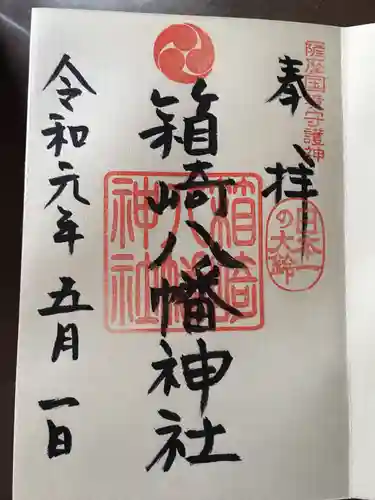 薩摩国守護神
奉拝
日本一の大鈴
箱崎八幡神社
箱崎八幡神社
令和元年五月一日